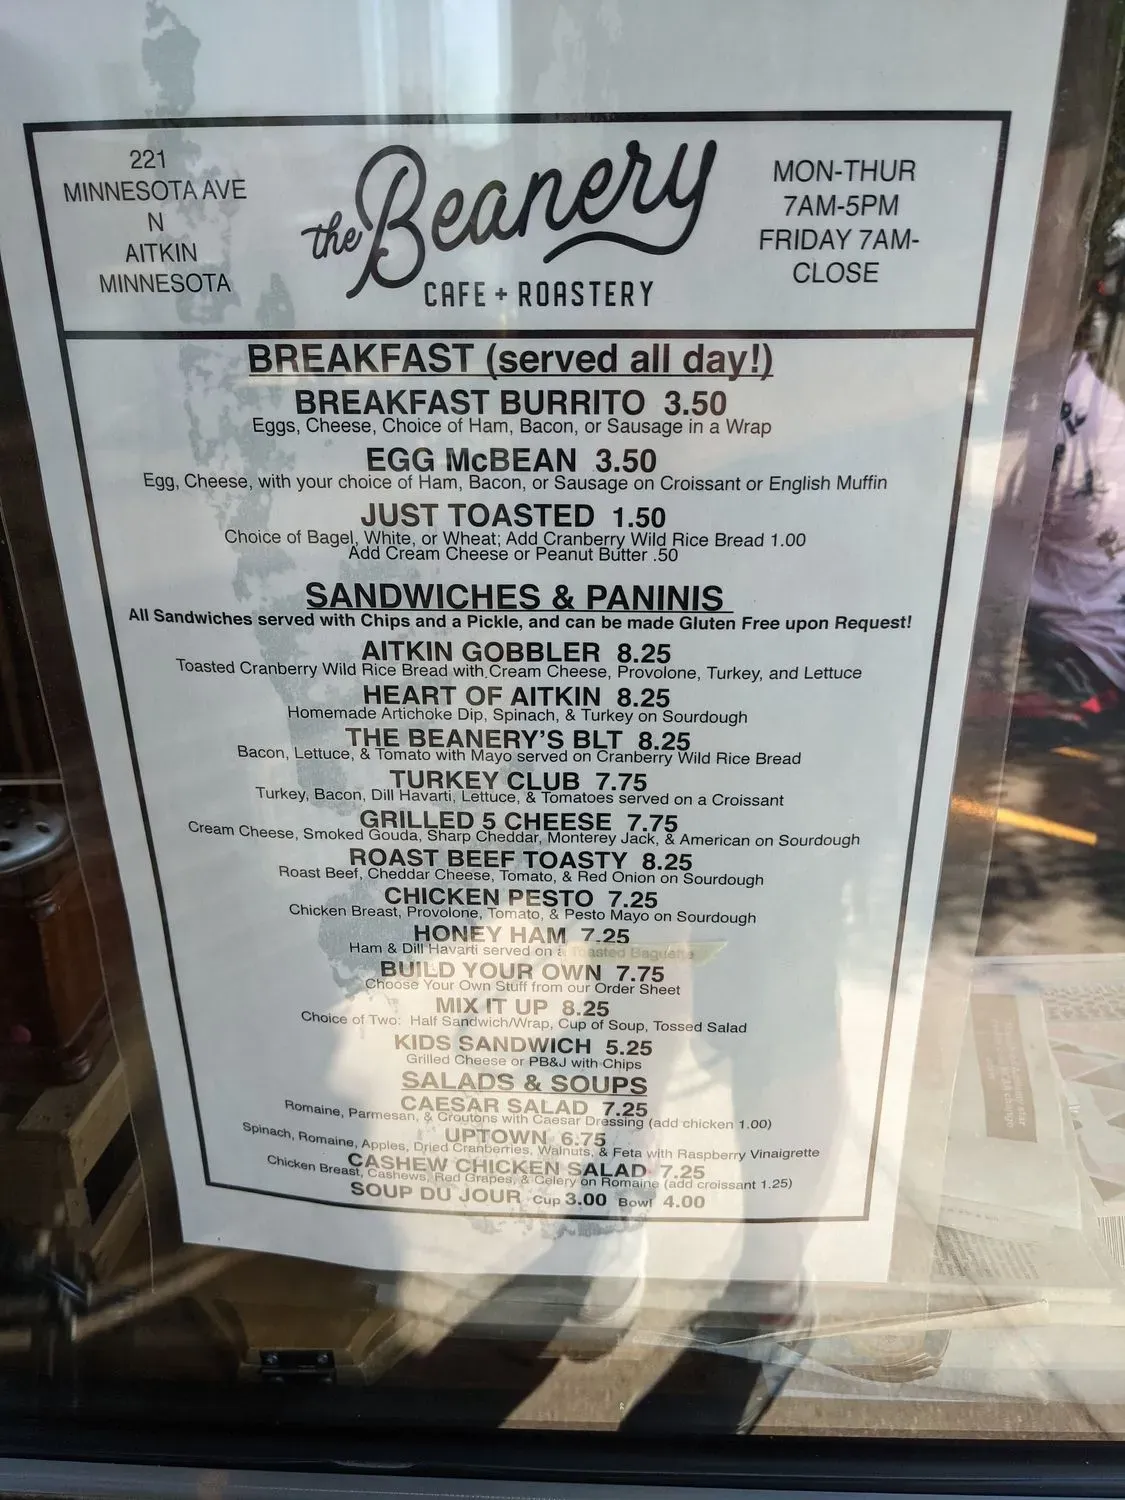 221
MINNESOTA AVE
N
AITKIN
MINNESOTA
the Beanery
CAFE + ROASTERY
MON-THUR
7AM-5PM
FRIDAY 7AM-
CLOSE
BREAKFAST (served all day!)
BREAKFAST BURRITO 3.50
Eggs, Cheese, Choice of Ham, Bacon, or Sausage in a Wrap
EGG McBEAN 3.50
Egg, Cheese, with your choice of Ham, Bacon, or Sausage on Croissant or English Muffin
JUST TOASTED 1.50
Choice of Bagel, White, or Wheat; Add Cranberry Wild Rice Bread 1.00
Add Cream Cheese or Peanut Butter .50
SANDWICHES & PANINIS
All Sandwiches served with Chips and a Pickle, and can be made Gluten Free upon Request!
AITKIN GOBBLER 8.25
Toasted Cranberry Wild Rice Bread with Cream Cheese, Provolone, Turkey, and Lettuce
HEART OF AITKIN 8.25
Homemade Artichoke Dip, Spinach, & Turkey on Sourdough
THE BEANERY'S BLT 8.25
Bacon, Lettuce, & Tomato with Mayo served on Cranberry Wild Rice Bread
TURKEY CLUB 7.75
Turkey, Bacon, Dill Havarti, Lettuce, & Tomatoes served on a Croissant
GRILLED 5 CHEESE 7.75
Cream Cheese, Smoked Gouda, Sharp Cheddar, Monterey Jack, & American on Sourdough
ROAST BEEF TOASTY 8.25
Roast Beef, Cheddar Cheese, Tomato, & Red Onion on Sourdough
CHICKEN PESTO 7.25
Chicken Breast, Provolone, Tomato, & Pesto Mayo on Sourdough
HONEY HAM 7.25
Ham & Dill Havarti served on a Toasted Baguette
BUILD YOUR OWN 7.75
Choose Your Own Stuff from our Order Sheet
MIX IT UP 8.25
Choice of Two: Half Sandwich/Wrap, Cup of Soup, Tossed Salad
KIDS SANDWICH 5.25
Grilled Cheese or PB&J with Chips
SALADS & SOUPS
CAESAR SALAD 7.25
Romaine, Parmesan, & Croutons with Caesar Dressing (add chicken 1.00)
UPTOWN 6.75
Spinach, Romaine, Apples, Dried Cranberries, Walnuts, & Feta with Raspberry Vinaigrette
CASHEW CHICKEN SALAD 7.25
Chicken Breast, Cashews, Red Grapes, & Celery on Romaine (add croissant 1.25)
SOUP DU JOUR Cup 3.00 Bowl 4.00